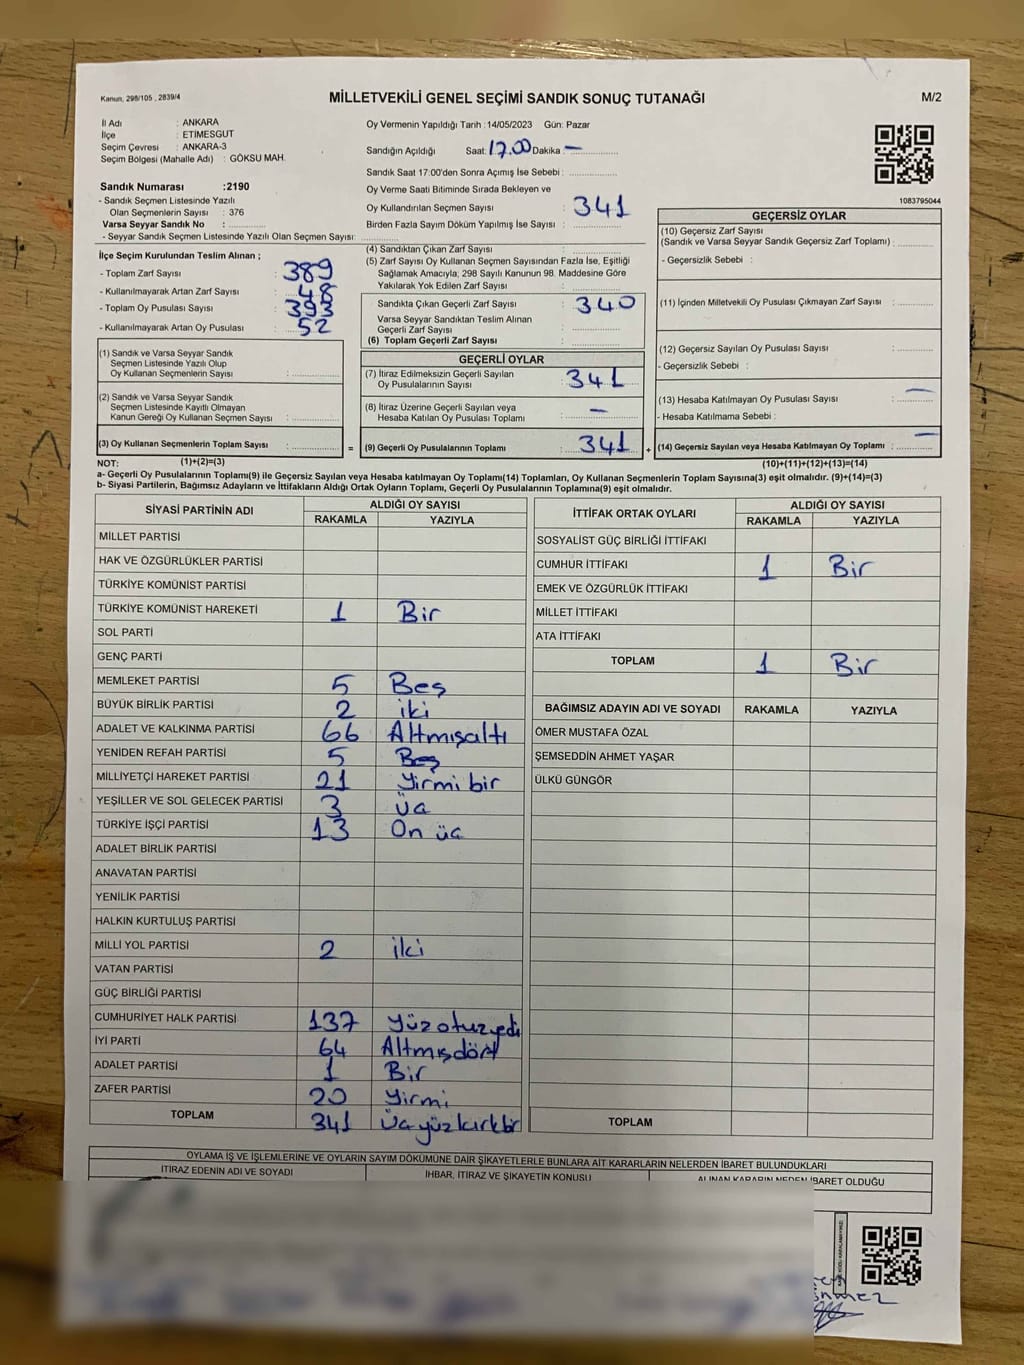 Kanun, 298/105 , 2839/4
MİLLETVEKİLİ GENEL SEÇİMİ SANDIK SONUÇ TUTANAĞI
M/2
İl Adı : ANKARA
İlçe : ETİMESGUT
Seçim Çevresi : ANKARA-3
Seçim Bölgesi (Mahalle Adı) : GÖKSU MAH.
Sandık Numarası :2190
- Sandık Seçmen Listesinde Yazılı
Olan Seçmenlerin Sayısı : 376
Varsa Seyyar Sandık No :
- Seyyar Sandık Seçmen Listesinde Yazılı Olan Seçmen Sayısı:
Oy Vermenin Yapıldığı Tarih : 14/05/2023 Gün: Pazar
Sandığın Açıldığı Saat: 17.00 Dakika : —
Sandık Saat 17:00'den Sonra Açımış İse Sebebi :
Oy Verme Saati Bitiminde Sırada Bekleyen ve
Oy Kullandırılan Seçmen Sayısı : 341
Birden Fazla Sayım Döküm Yapılmış İse Sayısı :
1083795044
İlçe Seçim Kurulundan Teslim Alınan ;
- Toplam Zarf Sayısı : 389
- Kullanılmayarak Artan Zarf Sayısı : 48
- Toplam Oy Pusulası Sayısı : 393
- Kullanılmayarak Artan Oy Pusulası : 52
(1) Sandık ve Varsa Seyyar Sandık
Seçmen Listesinde Yazılı Olup
Oy Kullanan Seçmenlerin Sayısı :
(2) Sandık ve Varsa Seyyar Sandık
Seçmen Listesinde Kayıtlı Olmayan
Kanun Gereği Oy Kullanan Seçmen Sayısı :
(3) Oy Kullanan Seçmenlerin Toplam Sayısı : =
(1)+(2)=(3)
(4) Sandıktan Çıkan Zarf Sayısı :
(5) Zarf Sayısı Oy Kullanan Seçmen Sayısından Fazla İse, Eşitliği
Sağlamak Amacıyla; 298 Sayılı Kanunun 98. Maddesine Göre
Yakılarak Yok Edilen Zarf Sayısı :
Sandıkta Çıkan Geçerli Zarf Sayısı : 340
Varsa Seyyar Sandıktan Teslim Alınan
Geçerli Zarf Sayısı :
(6) Toplam Geçerli Zarf Sayısı :
GEÇERLİ OYLAR
(7) İtiraz Edilmeksizin Geçerli Sayılan
Oy Pusulalarının Sayısı : 341
(8) İtiraz Üzerine Geçerli Sayılan veya
Hesaba Katılan Oy Pusulaları Toplamı : —
(9) Geçerli Oy Pusulalarının Toplamı : 341 +
GEÇERSİZ OYLAR
(10) Geçersiz Zarf Sayısı
(Sandık ve Varsa Seyyar Sandık Geçersiz Zarf Toplamı) :
- Geçersizlik Sebebi :
(11) İçinden Milletvekili Oy Pusulası Çıkmayan Zarf Sayısı :
(12) Geçersiz Sayılan Oy Pusulası Sayısı :
- Geçersizlik Sebebi :
(13) Hesaba Katılmayan Oy Pusulası Sayısı : —
- Hesaba Katılmama Sebebi :
(14) Geçersiz Sayılan veya Hesaba Katılmayan Oy Toplamı : —
(10)+(11)+(12)+(13)=(14)
NOT:
a- Geçerli Oy Pusulalarının Toplamı(9) ile Geçersiz Sayılan veya Hesaba katılmayan Oy Toplamı(14) Toplamları, Oy Kullanan Seçmenlerin Toplam Sayısına(3) eşit olmalıdır. (9)+(14)=(3)
b- Siyasi Partilerin, Bağımsız Adayların ve İttifakların Aldığı Ortak Oyların Toplamı, Geçerli Oy Pusulalarının Toplamına(9) eşit olmalıdır.
SİYASİ PARTİNİN ADI ALDIĞI OY SAYISI
RAKAMLA YAZIYLA
MİLLET PARTİSİ
HAK VE ÖZGÜRLÜKLER PARTİSİ
TÜRKİYE KOMÜNİST PARTİSİ
TÜRKİYE KOMÜNİST HAREKETİ 1 Bir
SOL PARTİ
GENÇ PARTİ
MEMLEKET PARTİSİ 5 Beş
BÜYÜK BİRLİK PARTİSİ 2 iki
ADALET VE KALKINMA PARTİSİ 66 Altmışaltı
YENİDEN REFAH PARTİSİ 5 Beş
MİLLİYETÇİ HAREKET PARTİSİ 21 Yirmi bir
YEŞİLLER VE SOL GELECEK PARTİSİ 3 Üç
TÜRKİYE İŞÇİ PARTİSİ 13 On üç
ADALET BİRLİK PARTİSİ
ANAVATAN PARTİSİ
YENİLİK PARTİSİ
HALKIN KURTULUŞ PARTİSİ
MİLLİ YOL PARTİSİ 2 iki
VATAN PARTİSİ
GÜÇ BİRLİĞİ PARTİSİ
CUMHURİYET HALK PARTİSİ 137 Yüzotuzyedi
İYİ PARTİ 64 Altmışdört
ADALET PARTİSİ 1 Bir
ZAFER PARTİSİ 20 Yirmi
TOPLAM 341 Üçyüzkırkbir
İTTİFAK ORTAK OYLARI ALDIĞI OY SAYISI
RAKAMLA YAZIYLA
SOSYALİST GÜÇ BİRLİĞİ İTTİFAKI
CUMHUR İTTİFAKI 1 Bir
EMEK VE ÖZGÜRLÜK İTTİFAKI
MİLLET İTTİFAKI
ATA İTTİFAKI
TOPLAM 1 Bir
BAĞIMSIZ ADAYIN ADI VE SOYADI RAKAMLA YAZIYLA
ÖMER MUSTAFA ÖZAL
ŞEMSEDDİN AHMET YAŞAR
ÜLKÜ GÜNGÖR
TOPLAM
OYLAMA İŞ VE İŞLEMLERİNE VE OYLARIN SAYIM DÖKÜMÜNE DAİR ŞİKAYETLERLE BUNLARA AİT KARARLARIN NELERDEN İBARET BULUNDUKLARI
İTİRAZ EDENİN ADI VE SOYADI
İHBAR, İTİRAZ VE ŞİKAYETİN KONUSU
ALINAN KARARIN NEDEN İBARET OLDUĞU